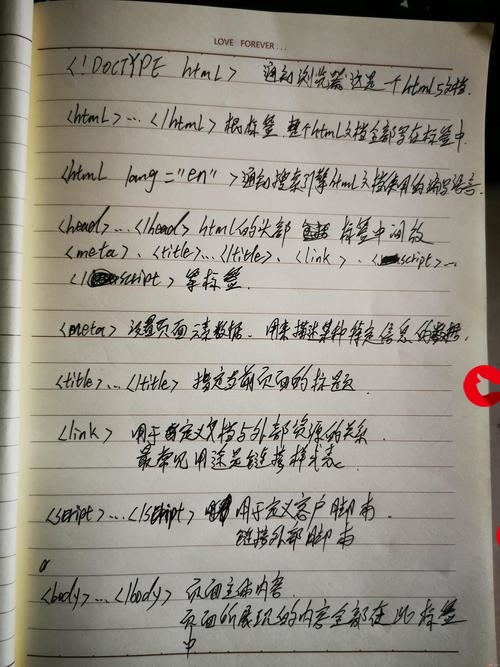 LOVE FOREVER...
<!DOCTYPE html> 通知浏览器这是一个html5文档.
<html>...</html> 根标签,整个html文档全部写在标签中.
<html lang="en">通知搜索引擎html文档使用的编写语言.
<head>...</head> html的头部 标签中间放
<meta>、<title>...</title>、<link>、<script>...
</script>等标签.
<meta> 设置页面元素数据. 用来描述某种特定信息的数据.
<title>...</title> 指定当前页面的标题.
<link> 用于定义文档与外部资源的关系.
最常见用途是链接样式表.
<script>...</script> 用于定义客户脚本.
链接外部脚本
<body>...</body> 页面主体内容.
页面所展现的内容全部在此标签
中